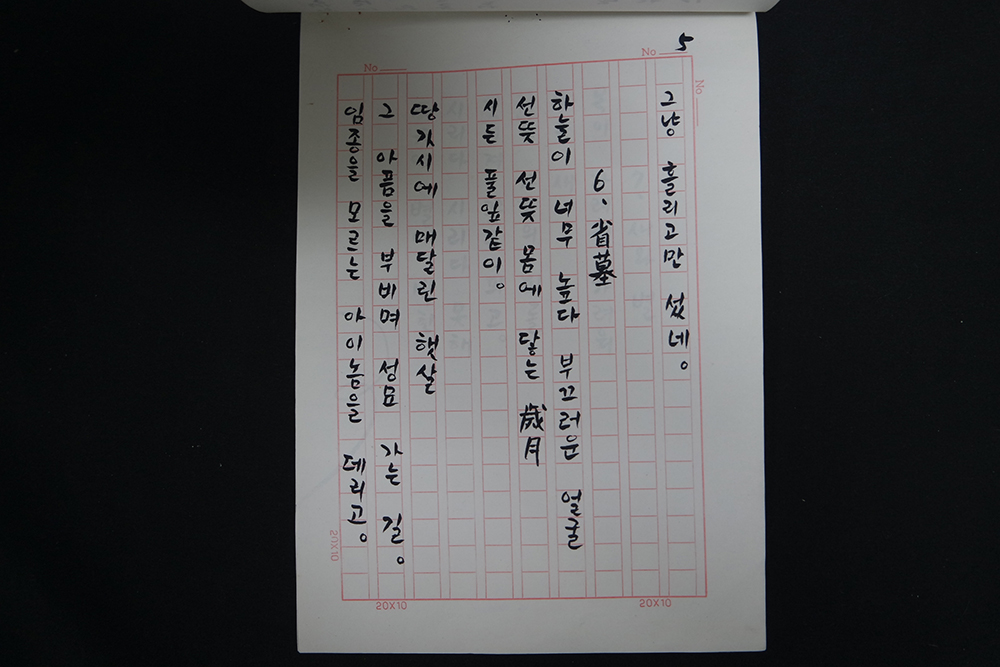 5
No
No
No
그냥 흘리고만 섰네。
6、省墓
하늘이 너무 높다 부끄러운 얼굴
선뜻 선뜻 몸에 닿는 歲月
시든 풀잎같이。
땅가시에 매달린 햇살
그 아픔을 부비며 성묘 가는 길。
임종을 모르는 아이놈을 데리고。
20X10
20X10
20X10